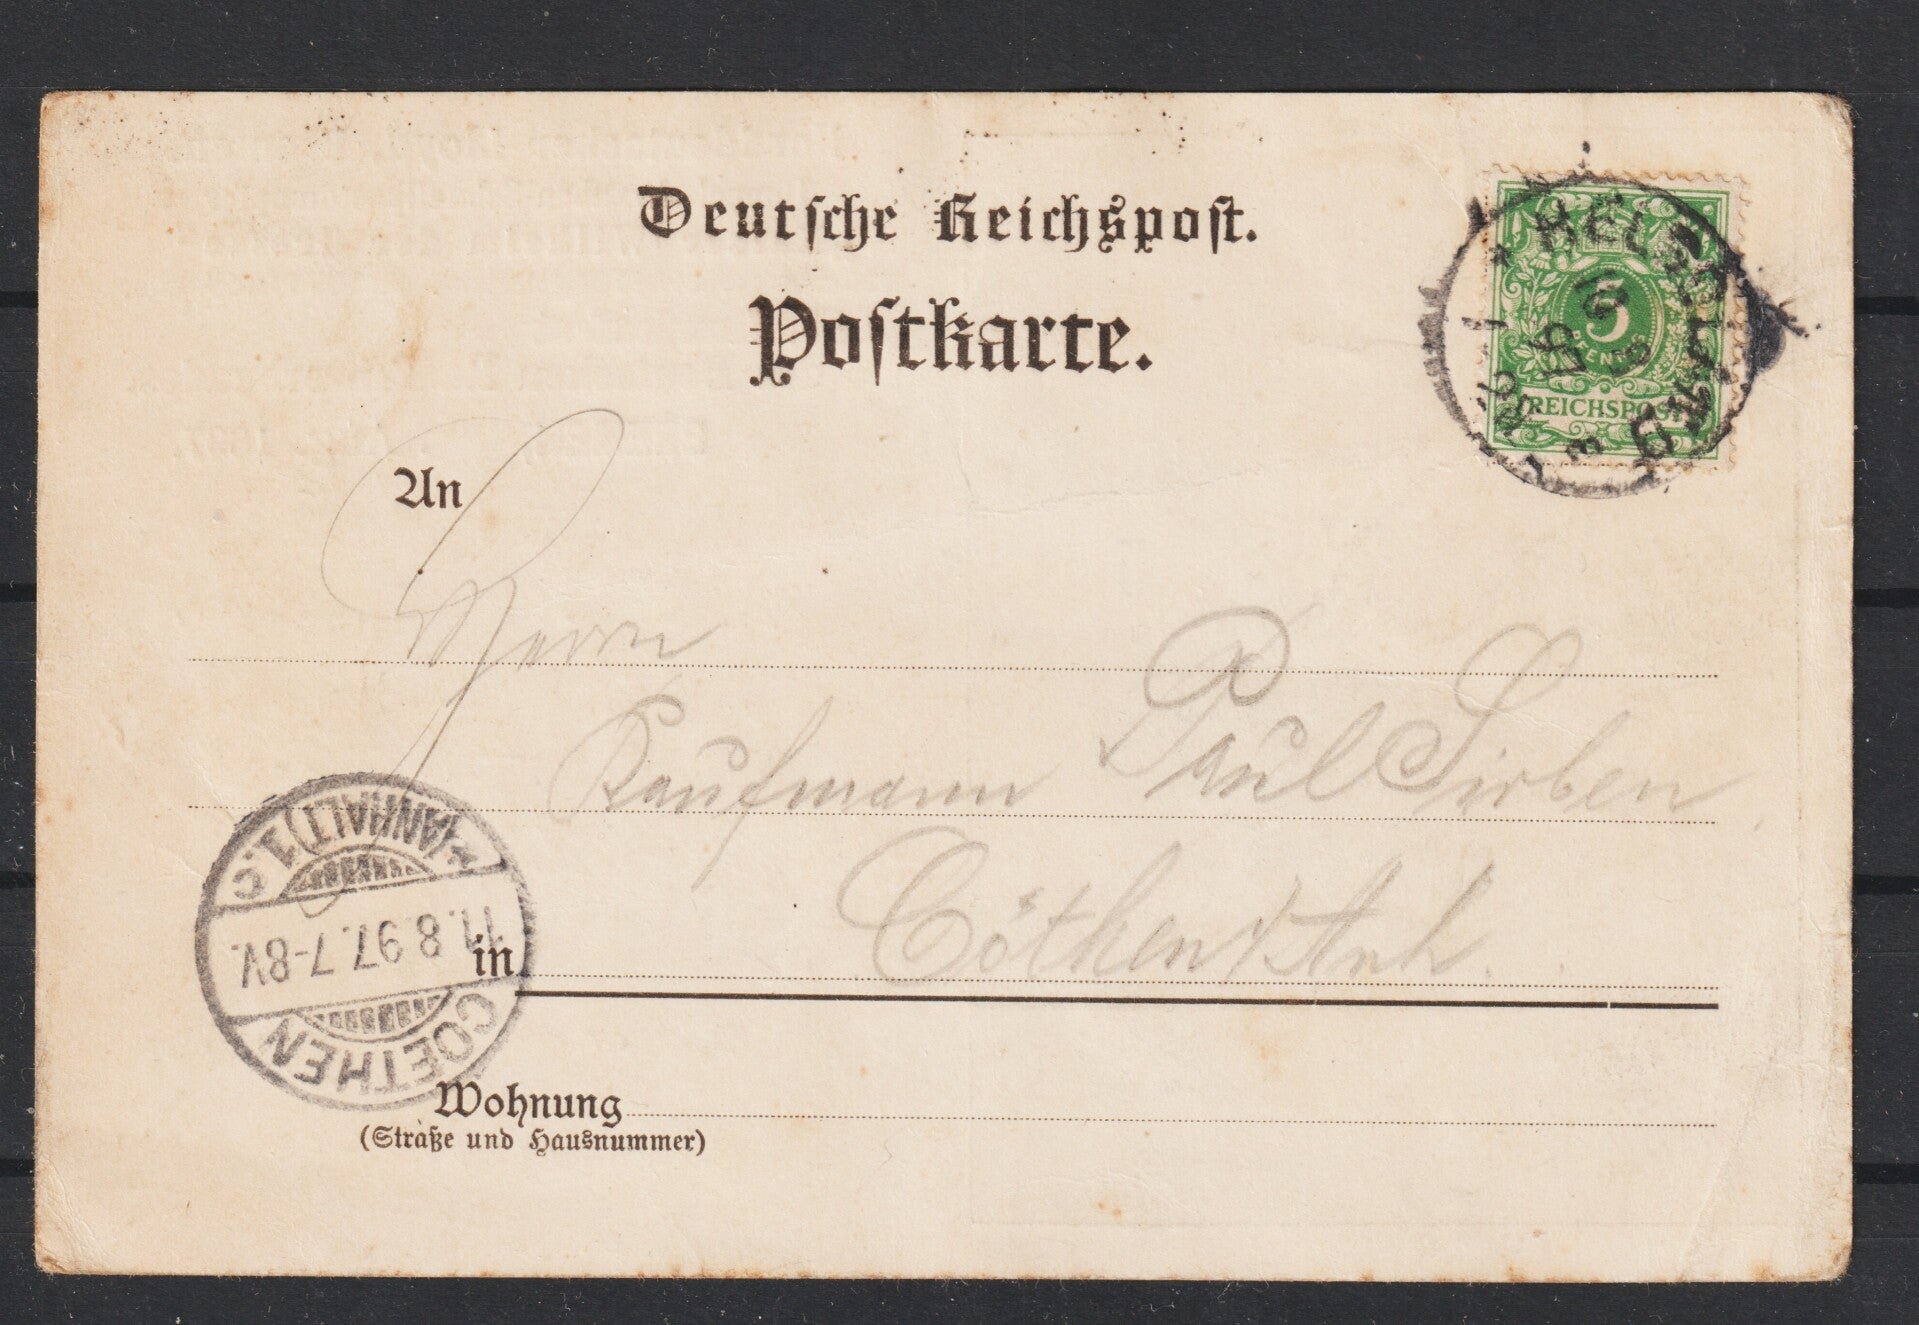 Deutsche Reichspost.
Postkarte.
5
PFENNIG
REICHSPOST
HELGOLAND
10 8
97
An
Herrn
Kaufmann Paul Sirben
in Cöthen / Anh.
COETHEN
11.8.97.7-8V.
(ANHALT) 1.c
Wohnung
(Straße und Hausnummer)